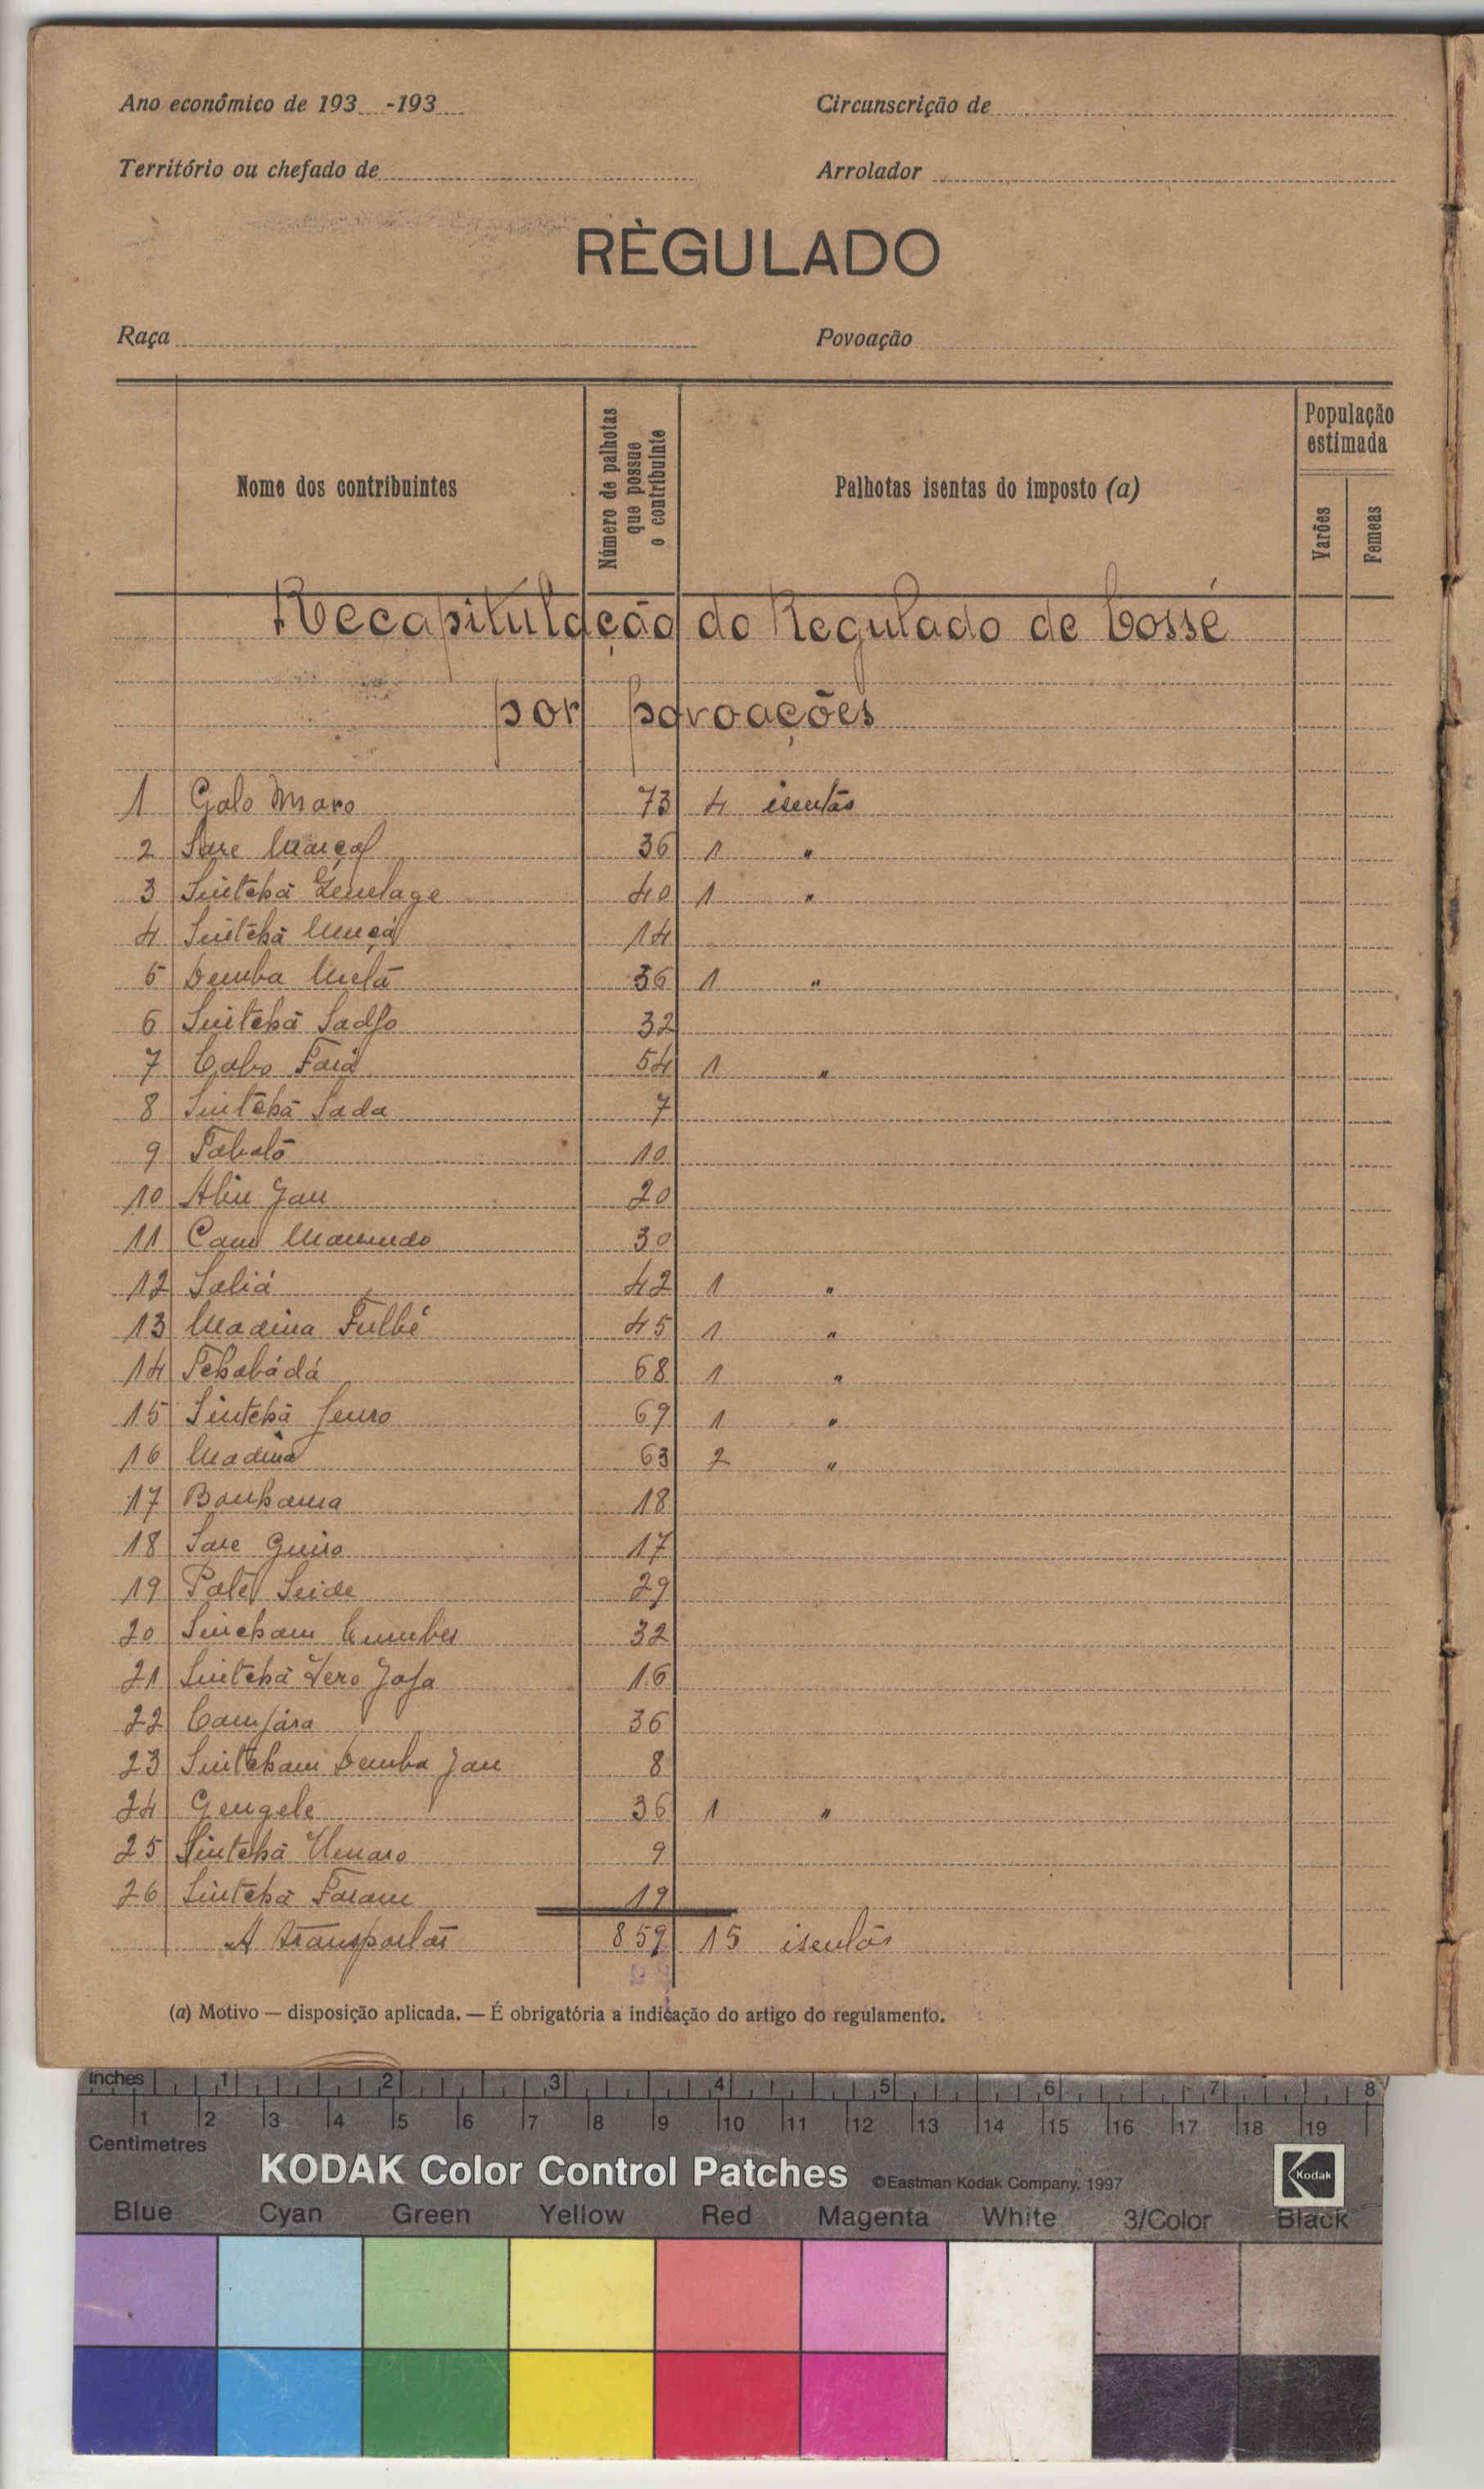 Ano econômico de 193 -193
Circunscrição de
Território ou chefado de
Arrolador
RÈGULADO
Raça
Povoação
Nome dos contribuintes
Número de palhotas que possue o contribuinte
Palhotas isentas do imposto (a)
População estimada
Varões
Femeas
Recapitulação do Regulado de Cossé
por povoações
1 Galo Maro 73 4 isentas
2 Sare 36 1 "
3 Sintchã 40 1 "
4 Sintchã 14
5 Demba 36 1 "
6 Sintchã Sadjo 32
7 54 1 "
8 Sintchã Sada 7
9 10
10 Aliu Jau 20
11 Cam Mamudo 30
12 Saliá 42 1 "
13 Madina Fulbé 45 1 "
14 Tchabádá 68 1 "
15 Sintchã 69 1 "
16 Madina 63 2 "
17 18
18 Sare Guiro 17
19 Paté Seide 29
20 Sincham 32
21 Sintchã Iero Jafa 16
22 Camjára 36
23 Sintcham Demba Jau 8
24 Gengele 36 1 "
25 Sintchã Umaro 9
26 Sintchã 19
A transportar 859 15 isentas
(a) Motivo — disposição aplicada. — É obrigatória a indicação do artigo do regulamento.
Inches 1 2 3 4 5 6 7 8
1 2 3 4 5 6 7 8 9 10 11 12 13 14 15 16 17 18 19
Centimetres
KODAK Color Control Patches ©Eastman Kodak Company, 1997 Kodak
Blue Cyan Green Yellow Red Magenta White 3/Color Black